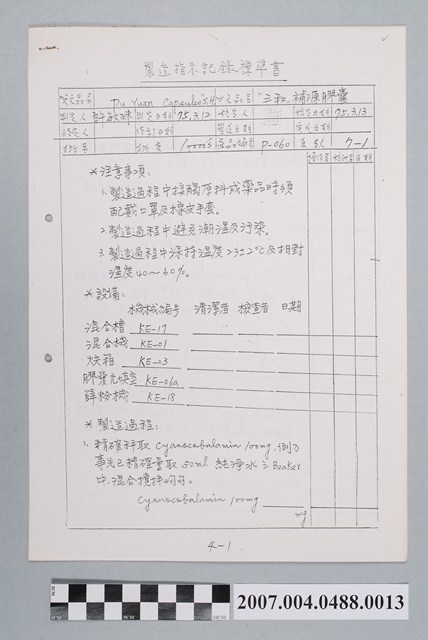 製造指示記錄標準書
英文品名 Pu Yuan Capsules "S.H" 中文品名 "三和" 補源膠囊
制定人 許敏珠 制定日期 75.3.12 核定人 核定日期 75.3.13
製造日期
批號 批量 10000's 產品編號 P-060 頁數 7-1
操作者 檢查者 日期
＊注意事項：
1. 製造過程中接觸原料或藥品時須
配戴口罩及橡皮手套。
2. 製造過程中避免潮溫及汙染。
3. 製造過程中保持溫度23±2°C及相對
溫度40～60%。
＊設備：
機械編號 清潔者 檢查者 日期
混合槽 KE-17
混合機 KE-01
烘箱 KE-03
膠囊充填室 KE-06a
篩粉機 KE-18
＊製造過程：
1. 精確秤取 Cyanocobalamin 100mg. 倒入
事先已精確量取 50ml 純淨水之 Beaker
中. 混合攪拌均勻。
Cyanocobalamin 100mg
mg
4-1
2007.004.0488.0013